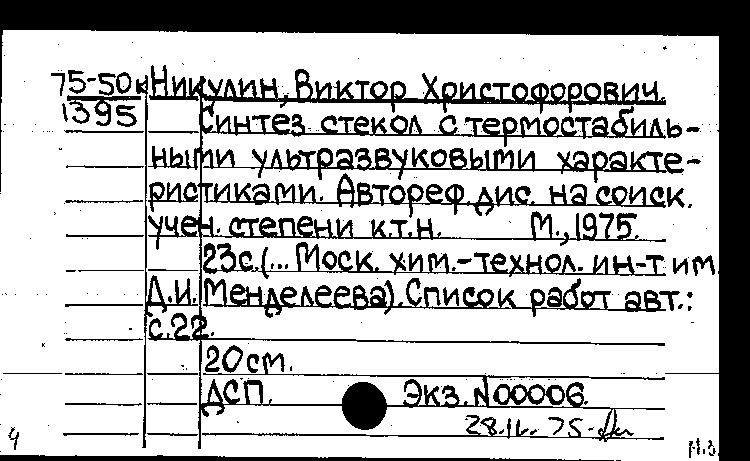 75-50к Никулин, Виктор Христофорович.
1395 Синтез стекол с термостабиль-
ными ультразвуковыми характе-
ристиками. Автореф. дис. на соиск.
учен. степени к.т.н. М., 1975.
23с. (... Моск. хим.-технол. ин-т им.
Д.И. Менделеева). Список работ авт.:
с.22.
20см.
ДСП. Экз. N00006.
75